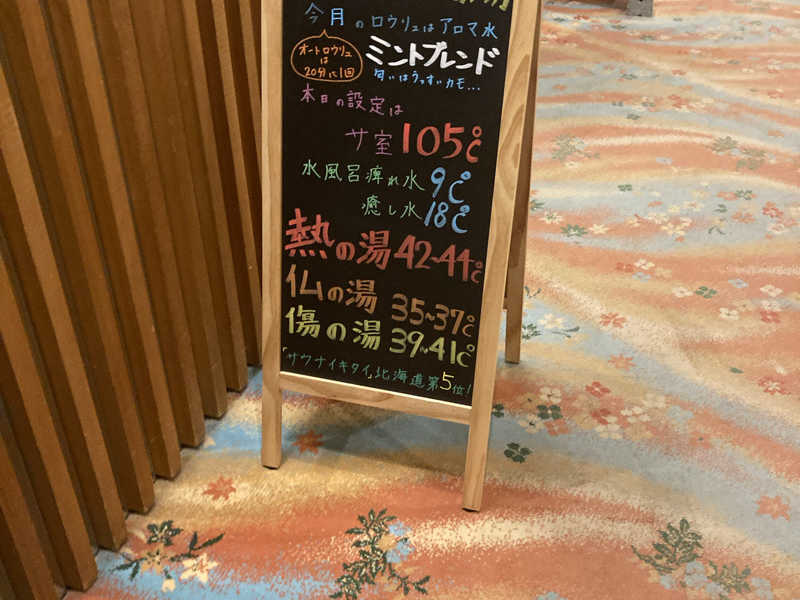 今月のロウリュはアロマ水
オートロウリュ
は
20分に1回
ミントブレンド
匂いはうっすいカモ...
本日の設定は
サ室 105℃
水風呂痺れ水 9℃
癒し水 18℃
熱の湯 42~44℃
仏の湯 35~37℃
傷の湯 39~41℃
「サウナイキタイ」北海道第5位!